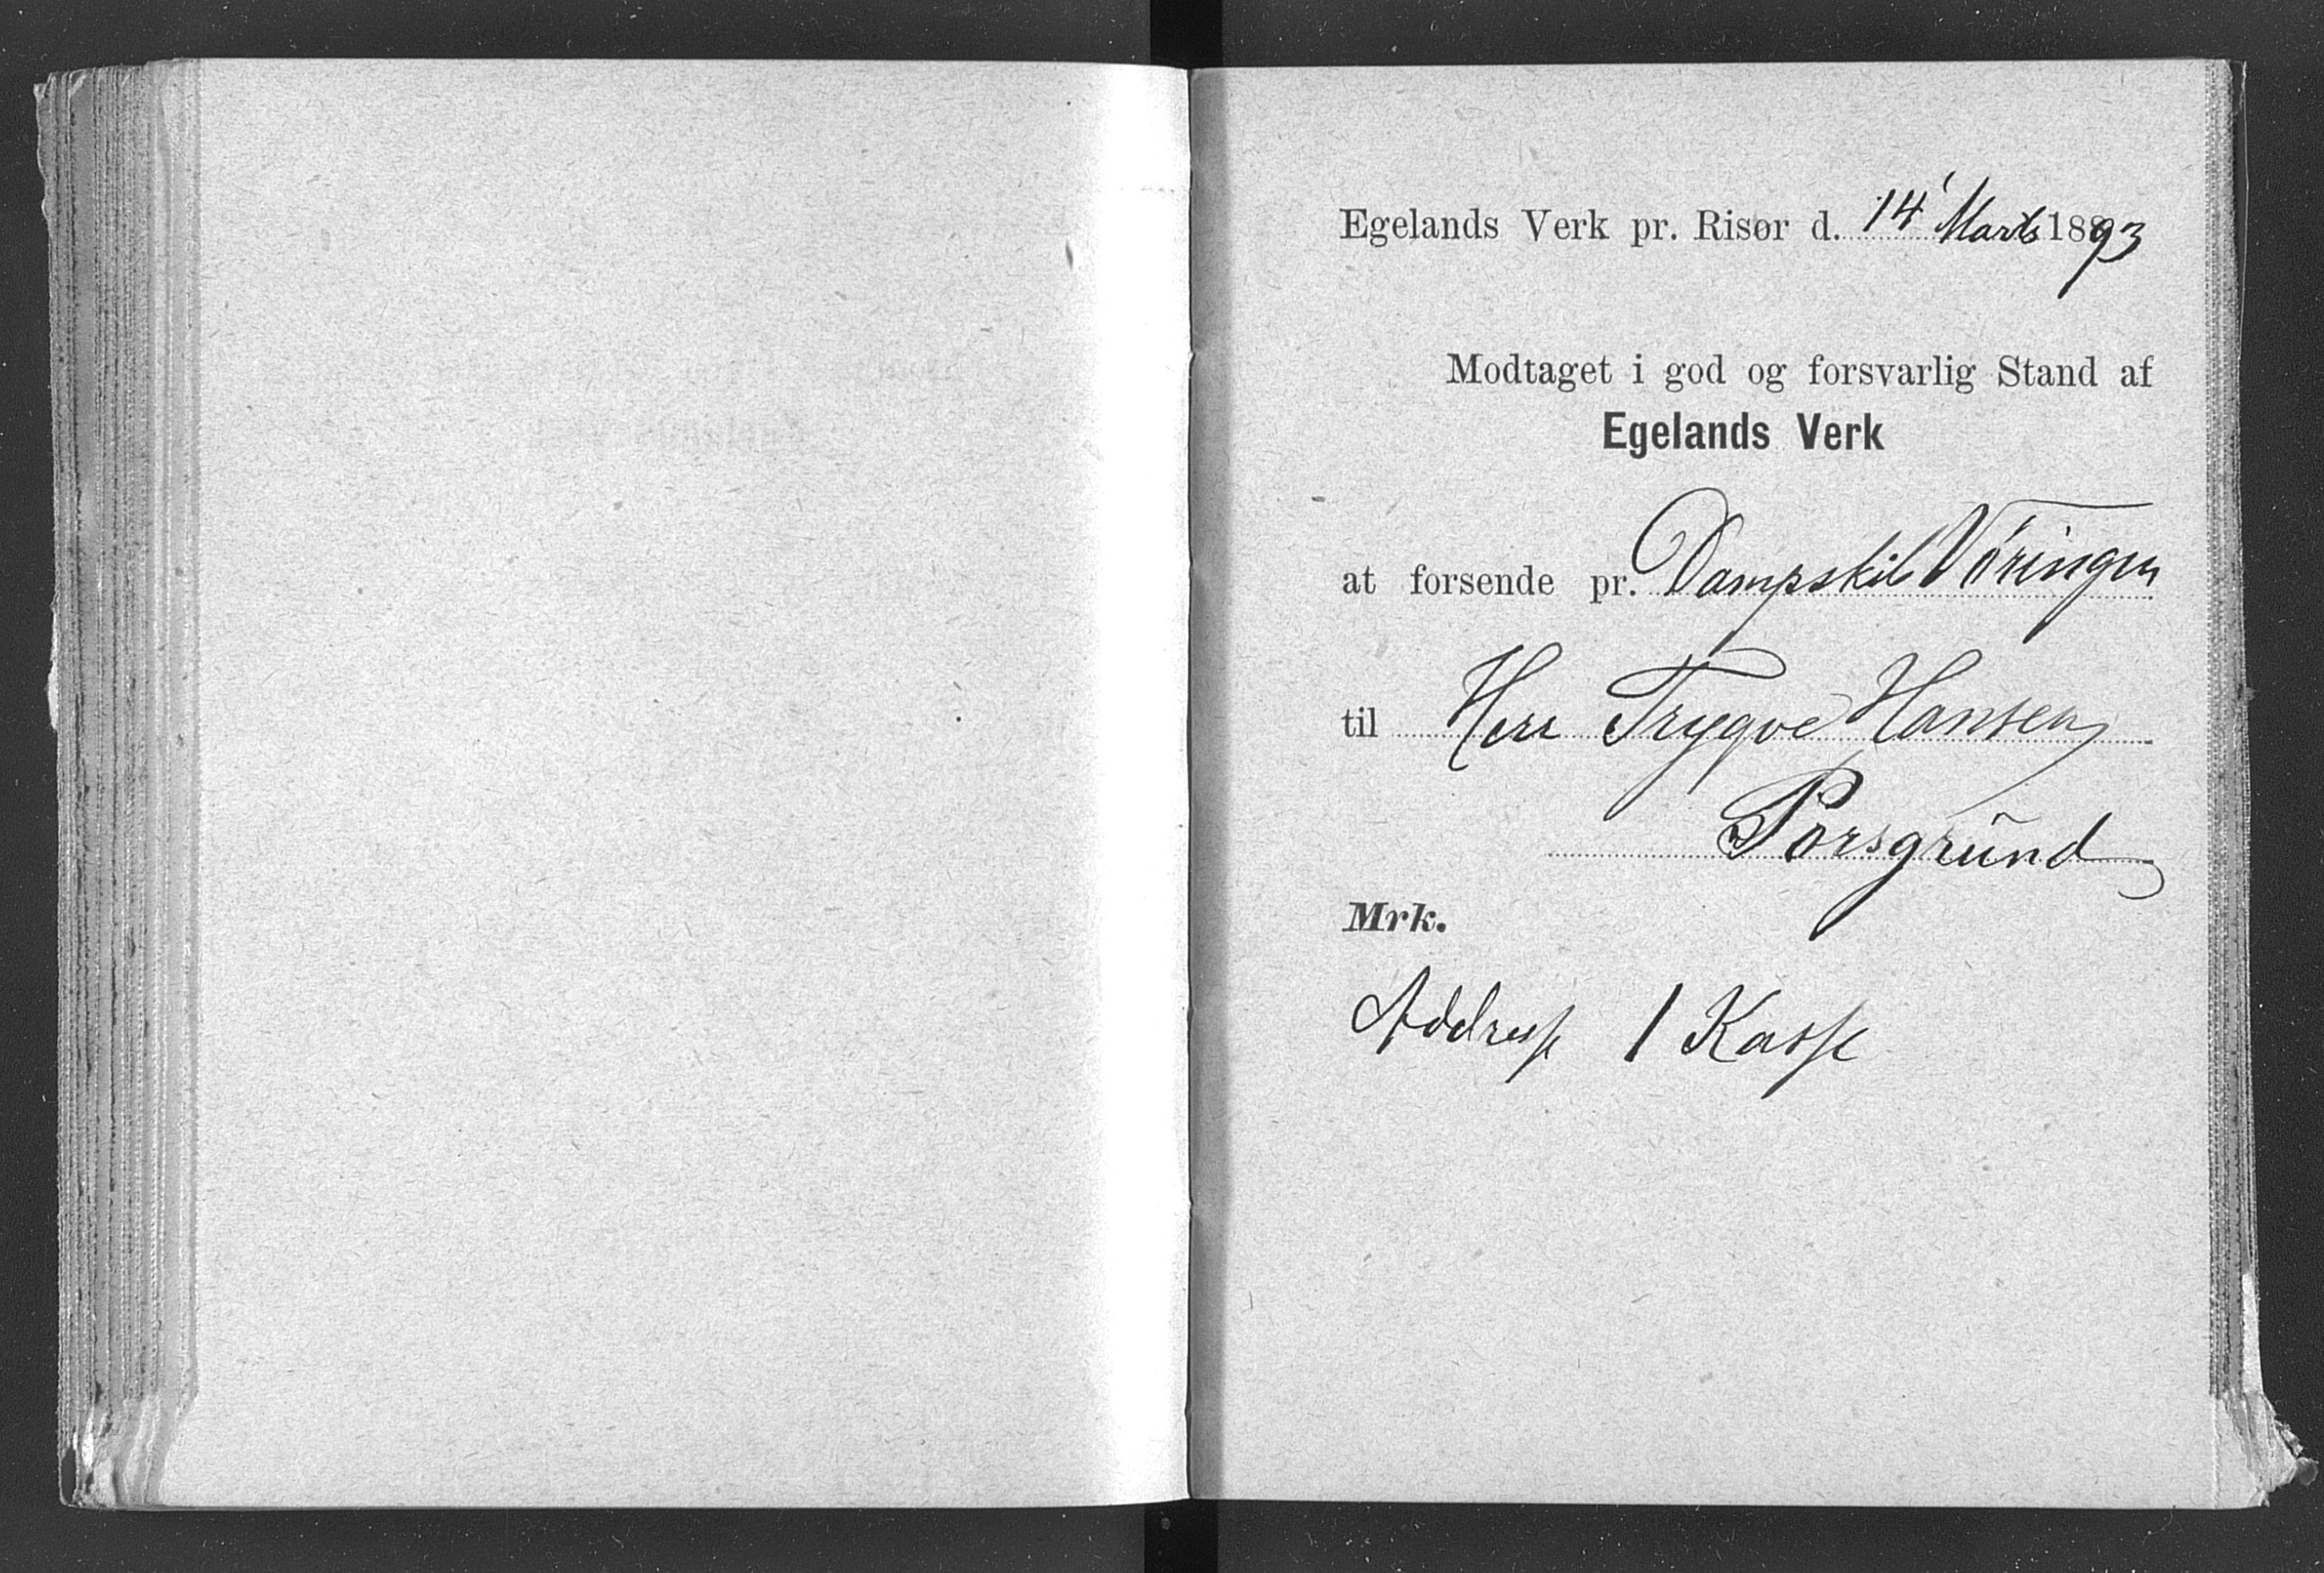 Egelands Verk pr. Risør d. 14' Marts 1893
Modtaget i god og forsvarlig Stand af
Egelands Verk
at forsende pr. Dampskib Vøringen
til Herr Trygve Hansen
Porsgrund
Mrk.
Addresse 1 Kasse